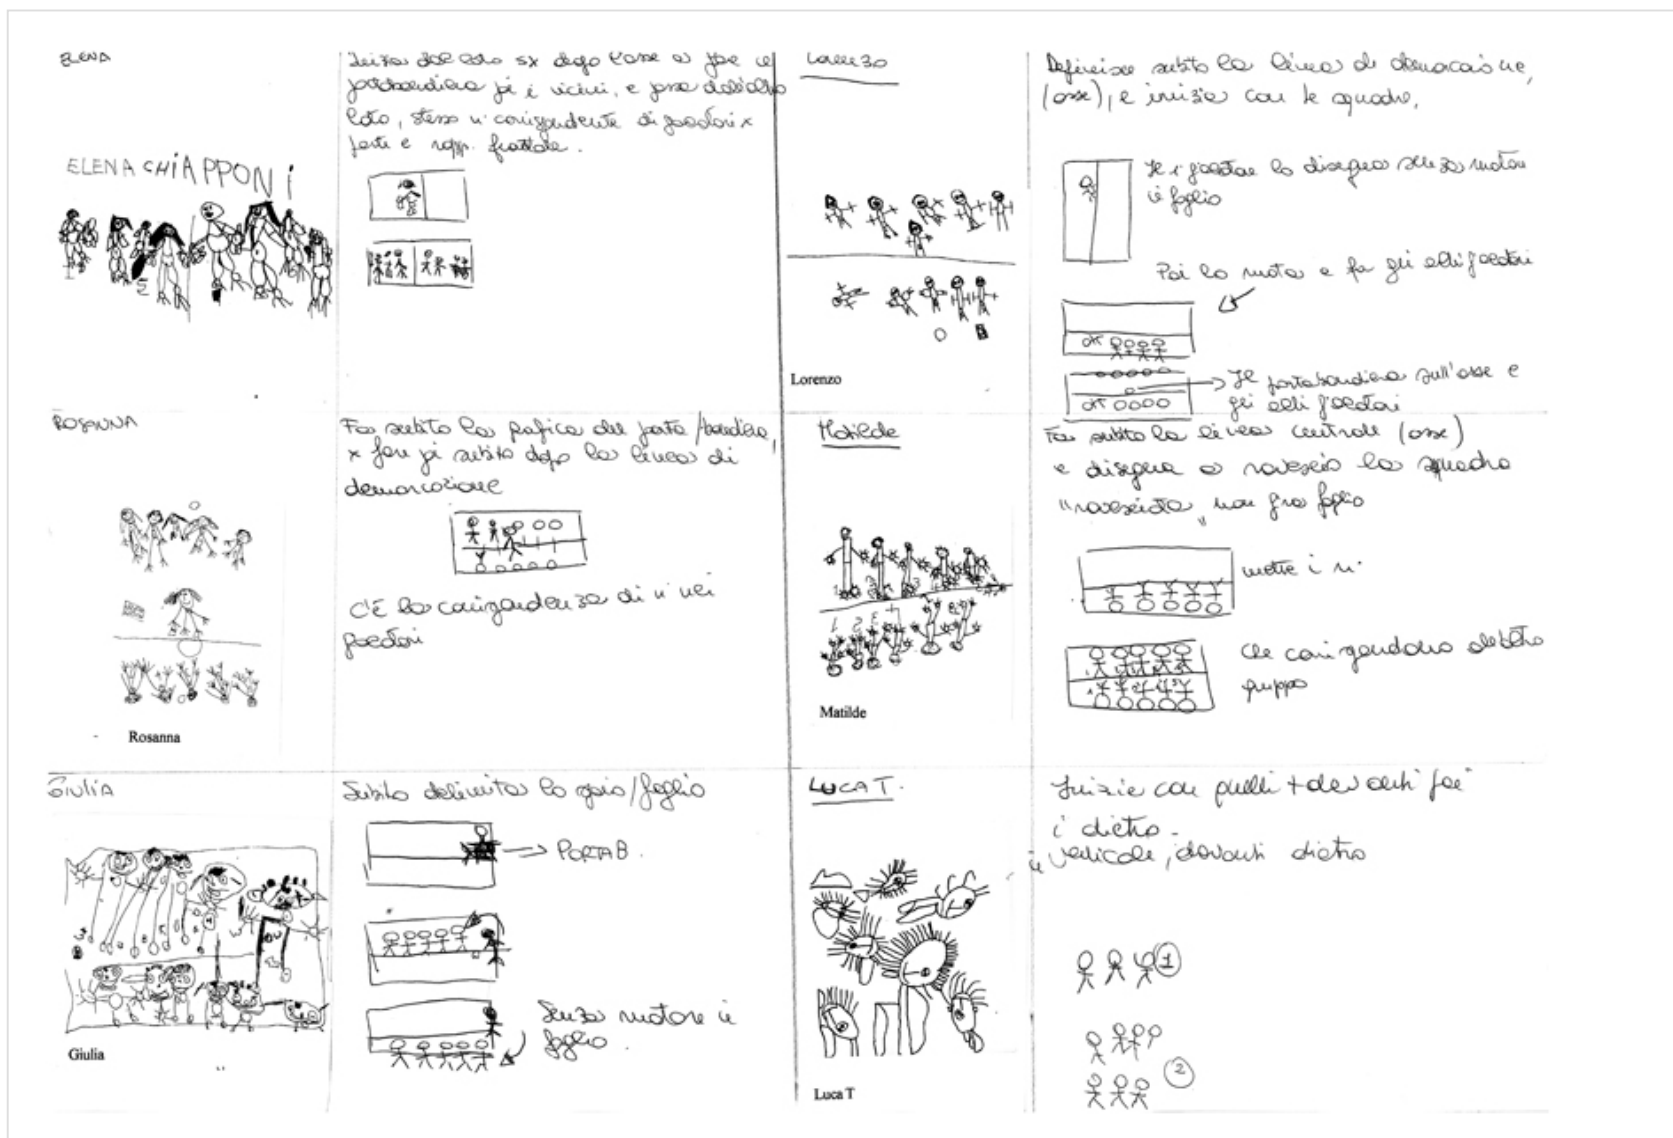 ELENA
Inizia dal lato sx dopo l'asse a fare il
portabandiera poi i vicini, e poi dall'altro
lato, stesso n° corrispondente di giocatori x
parte e rapp. frontale.
ELENA CHiAPPONi
Lorenzo
Definisce subito la linea di demarcazione,
(asse), e inizia con le squadre.
Il 1° giocatore lo disegna senza ruotare
il foglio
Poi lo ruota e fa gli altri giocatori
Il portabandiera sull'asse e
gli altri giocatori
Lorenzo
ROSANNA
Fa subito la grafica del porta/bandiera,
x fare poi subito dopo la linea di
demarcazione
C'È la corrispondenza di n° nei
giocatori
Rosanna
Matilde
Fa subito la linea centrale (asse)
e disegna a rovescio la squadra
"rovesciata" non gira foglio
mette i n°
che corrispondono all'altro
gruppo
1 2 3
Matilde
GIULIA
Subito delimita lo spazio/foglio
PORTAB.
Senza ruotare il
foglio.
Giulia
LUCA T.
Inizia con quelli + davanti poi
i dietro.
in verticale, davanti dietro
1
2
Luca T